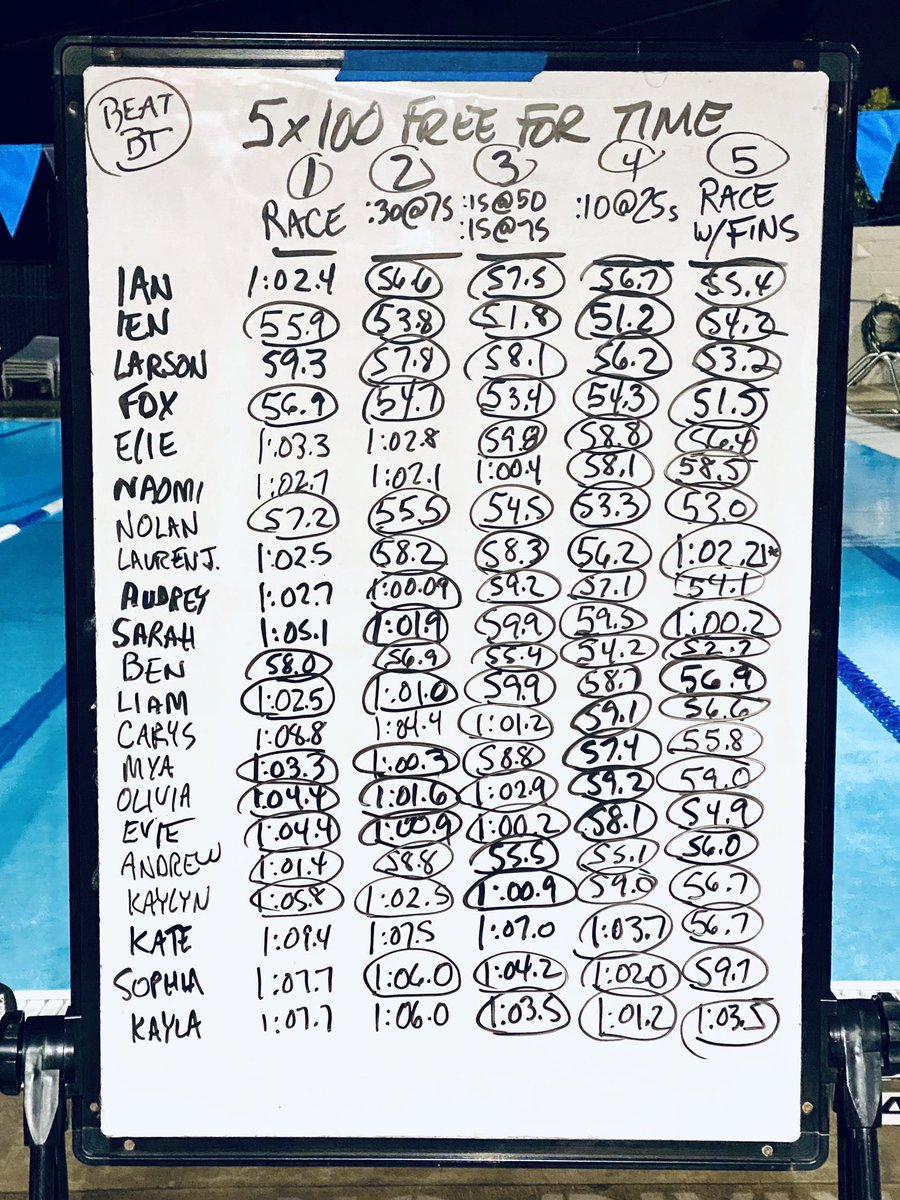 BEAT BT
5x100 FREE FOR TIME
1 2 3 4 5
RACE :30@75 :15@50 :15@75 :10@25s RACE W/FINS
IAN 1:02.4 56.6 57.5 56.7 55.4
IEN 55.9 53.8 51.8 51.2 54.2
LARSON 59.3 57.8 58.1 56.2 53.2
FOX 56.9 54.7 53.4 54.3 51.5
ELLE 1:03.3 1:02.8 59.8 58.8 56.4
NAOMI 1:02.7 1:02.1 1:00.4 58.1 58.5
NOLAN 57.2 55.5 54.5 53.3 53.0
LAUREN J. 1:02.5 58.2 58.3 56.2 1:02.21*
AUDREY 1:02.7 1:00.09 59.2 57.1 54.1
SARAH 1:05.1 1:01.9 59.9 59.5 1:00.2
BEN 58.0 56.9 55.4 54.2 52.7
LIAM 1:02.5 1:01.0 59.9 58.7 56.9
CARYS 1:08.8 1:04.4 1:01.2 59.1 56.6
MYA 1:03.3 1:00.3 58.8 57.4 55.8
OLIVIA 1:04.4 1:01.6 1:02.9 59.2 59.0
EVIE 1:04.4 1:00.9 1:00.2 58.1 54.9
ANDREW 1:01.4 58.8 55.5 55.1 56.0
KAYLYN 1:05.8 1:02.5 1:00.9 59.0 56.7
KATE 1:09.4 1:07.5 1:07.0 1:03.7 56.7
SOPHIA 1:07.7 1:06.0 1:04.2 1:02.0 59.7
KAYLA 1:07.7 1:06.0 1:03.5 1:01.2 1:03.5